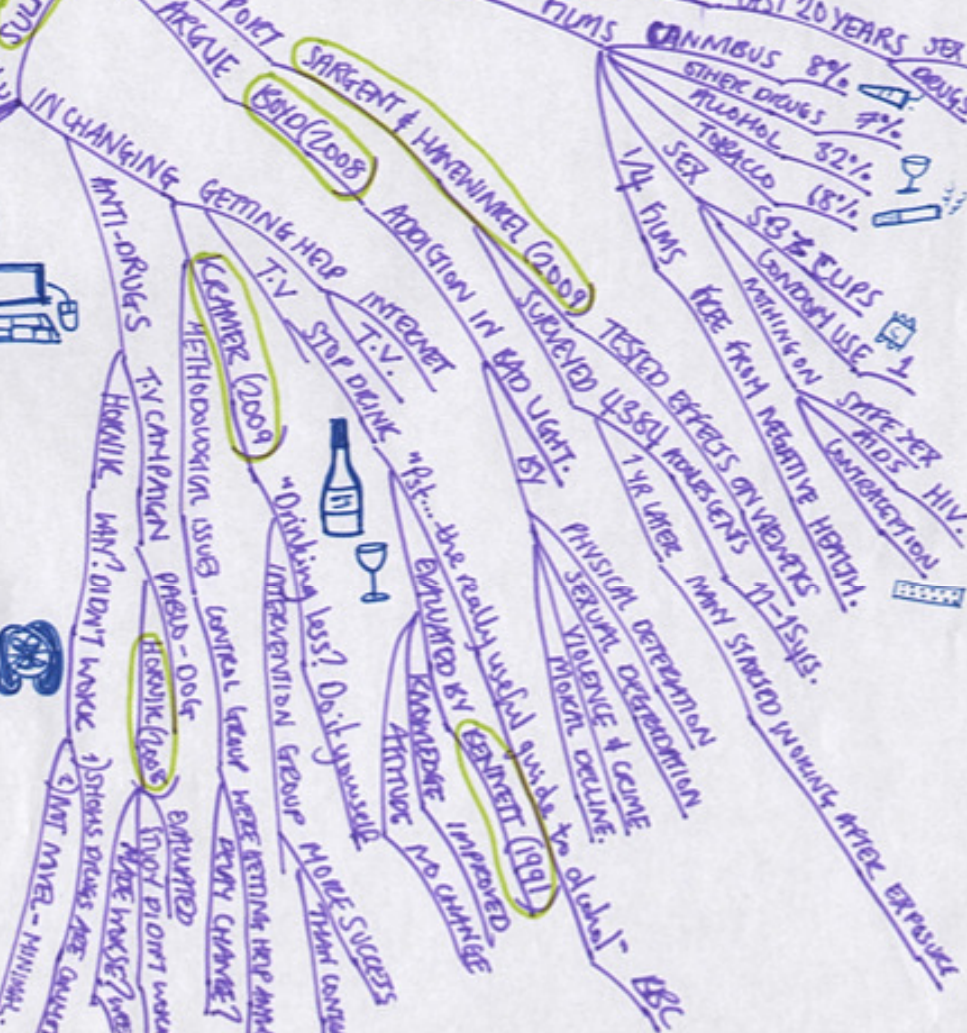 FILMS
LAST 20 YEARS
SEX
DRUGS
CANNIBUS 8%
OTHER DRUGS 7%
ALCOHOL 32%
TOBACCO 68%
SEX
CONDOM USE 1
NOTHING ON
SAFE SEX
AIDS
HIV.
CONTRACEPTION
1/4 FILMS
FREE FROM NEGATIVE HEALTH.
PORT
SARGENT & HANEWINKEL (2009
TESTED EFFECTS ON VIEWERS
SURVEYED 4384 ADOLESCENTS
11-15yrs.
1 YR LATER
MANY STARTED SMOKING AFTER EXPOSURE
ARGUE
BOYD (2008
ADDICTION IN BAD LIGHT.
BY
PHYSICAL DETERATION
SEXUAL DEGERDATION
VIOLENCE & CRIME
MORAL DECLINE.
IN CHANGING
GETTING HELP
INTERNET
T.V.
T.V
STOP DRINK
"Pst... the really useful guide to alcohol"
BBC
EVALUATED BY
BENNETT (1991)
KNOWLEDGE
IMPROVED
ATTITUDE
NO CHANGE
KRAMER (2009
"Drinking less? Do it yourself
INTERVENTION GROUP
MORE SUCCESS
THAN
METHODOLOGICAL ISSUES
CONTROL GROUP
WERE GETTING HELP
DENY CHANGE?
ANTI-DRUGS
T.V CAMPAIGN
PABLO - DOG
HORNIK (2008)
EVALUATED
STUDY DIDN'T
MADE WORSE?
HORNIK
WHY? DIDN'T WORK
1) SHOWS DRUGS ARE
2) NOT NOVEL - MINIMAL..